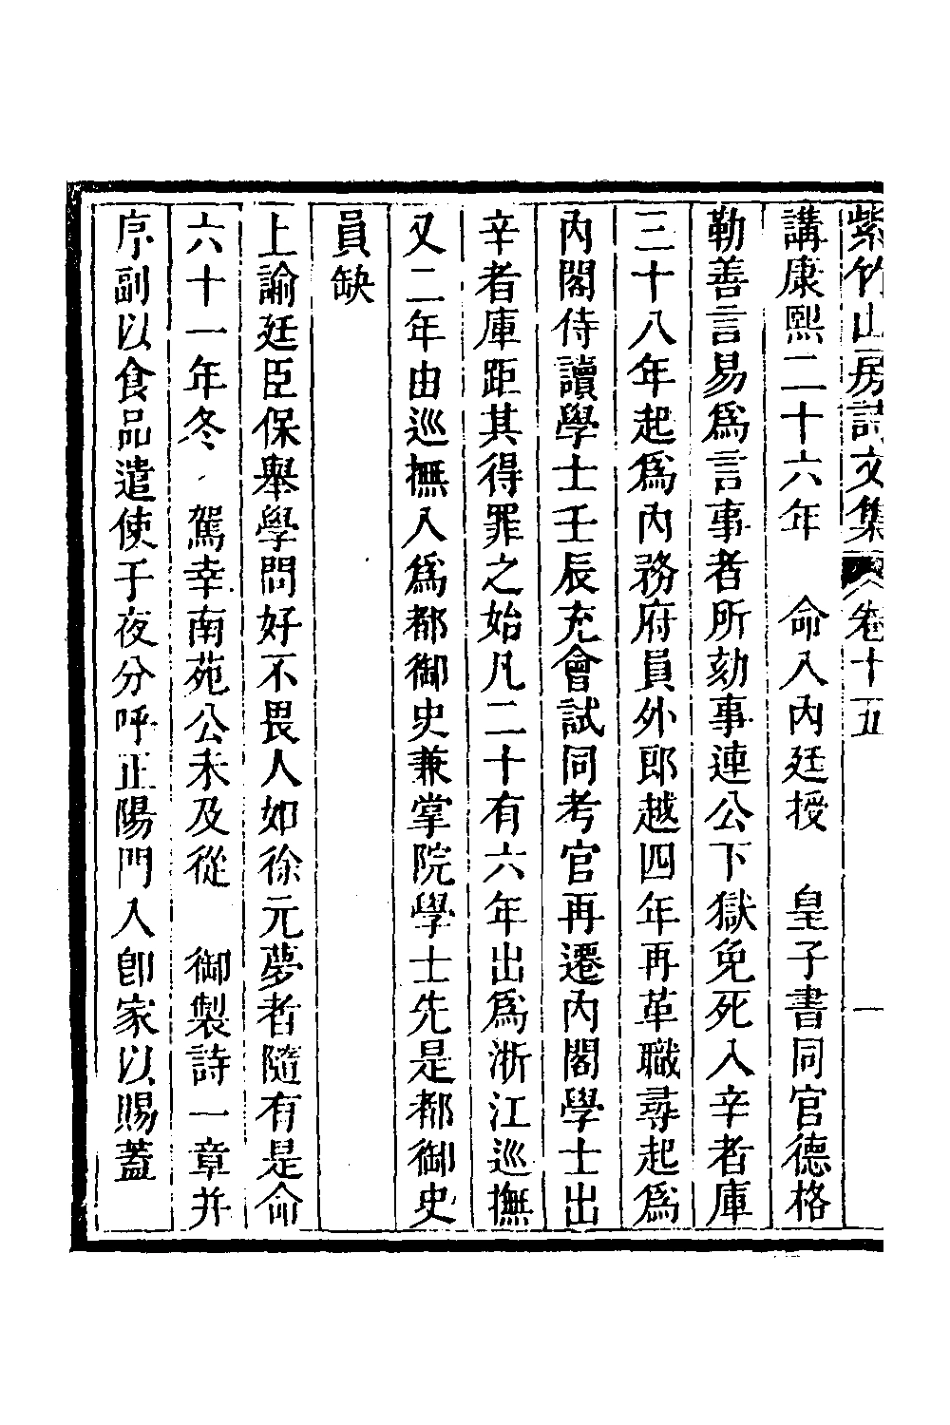 紫竹山房詩文集 卷十五 一
講康熙二十六年　命入內廷授　皇子書同官德格
勒善言易爲言事者所劾事連公下獄免死入辛者庫
三十八年起爲內務府員外郎越四年再革職尋起爲
內閣侍讀學士壬辰充會試同考官再遷內閣學士出
辛者庫距其得罪之始凡二十有六年出爲浙江巡撫
又二年由巡撫入爲都御史兼掌院學士先是都御史
員缺
上諭廷臣保舉學問好不畏人如徐元夢者隨有是命
六十一年冬　駕幸南苑公未及從　御製詩一章并
序副以食品遣使子夜分呼正陽門入卽家以賜蓋